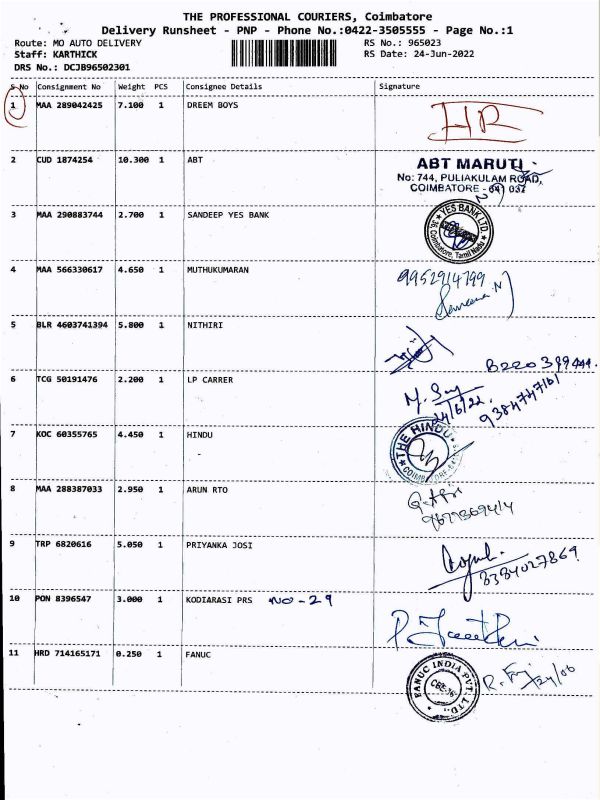 THE PROFESSIONAL COURIERS, Coimbatore
Delivery Runsheet - PNP - Phone No.:0422-3505555 - Page No.:1
Route: MO AUTO DELIVERY RS No.: 965023
Staff: KARTHICK RS Date: 24-Jun-2022
DRS No.: DCJB96502301
S No Consignment No Weight PCS Consignee Details Signature
1 MAA 289042425 7.100 1 DREEM BOYS
HR
2 CUD 1874254 10.300 1 ABT
ABT MARUTI
No: 744, PULIAKULAM ROAD,
COIMBATORE - 641 037
3 MAA 290883744 2.700 1 SANDEEP YES BANK
YES BANK LTD.
Coimbatore, Tamil Nadu
4 MAA 566330617 4.650 1 MUTHUKUMARAN
9952914799
5 BLR 4603741394 5.800 1 NITHIRI
6 TCG 50191476 2.200 1 LP CARRER
24/6/22
9384747161
7 KOC 60355765 4.450 1 HINDU
THE HINDU
8 MAA 288387033 2.950 1 ARUN RTO
9 TRP 6820616 5.050 1 PRIYANKA JOSI
8384027869
10 PON 8396547 3.000 1 KODIARASI PRS NO-29
11 HRD 714165171 0.250 1 FANUC
FANUC INDIA PVT. LTD.
24/06